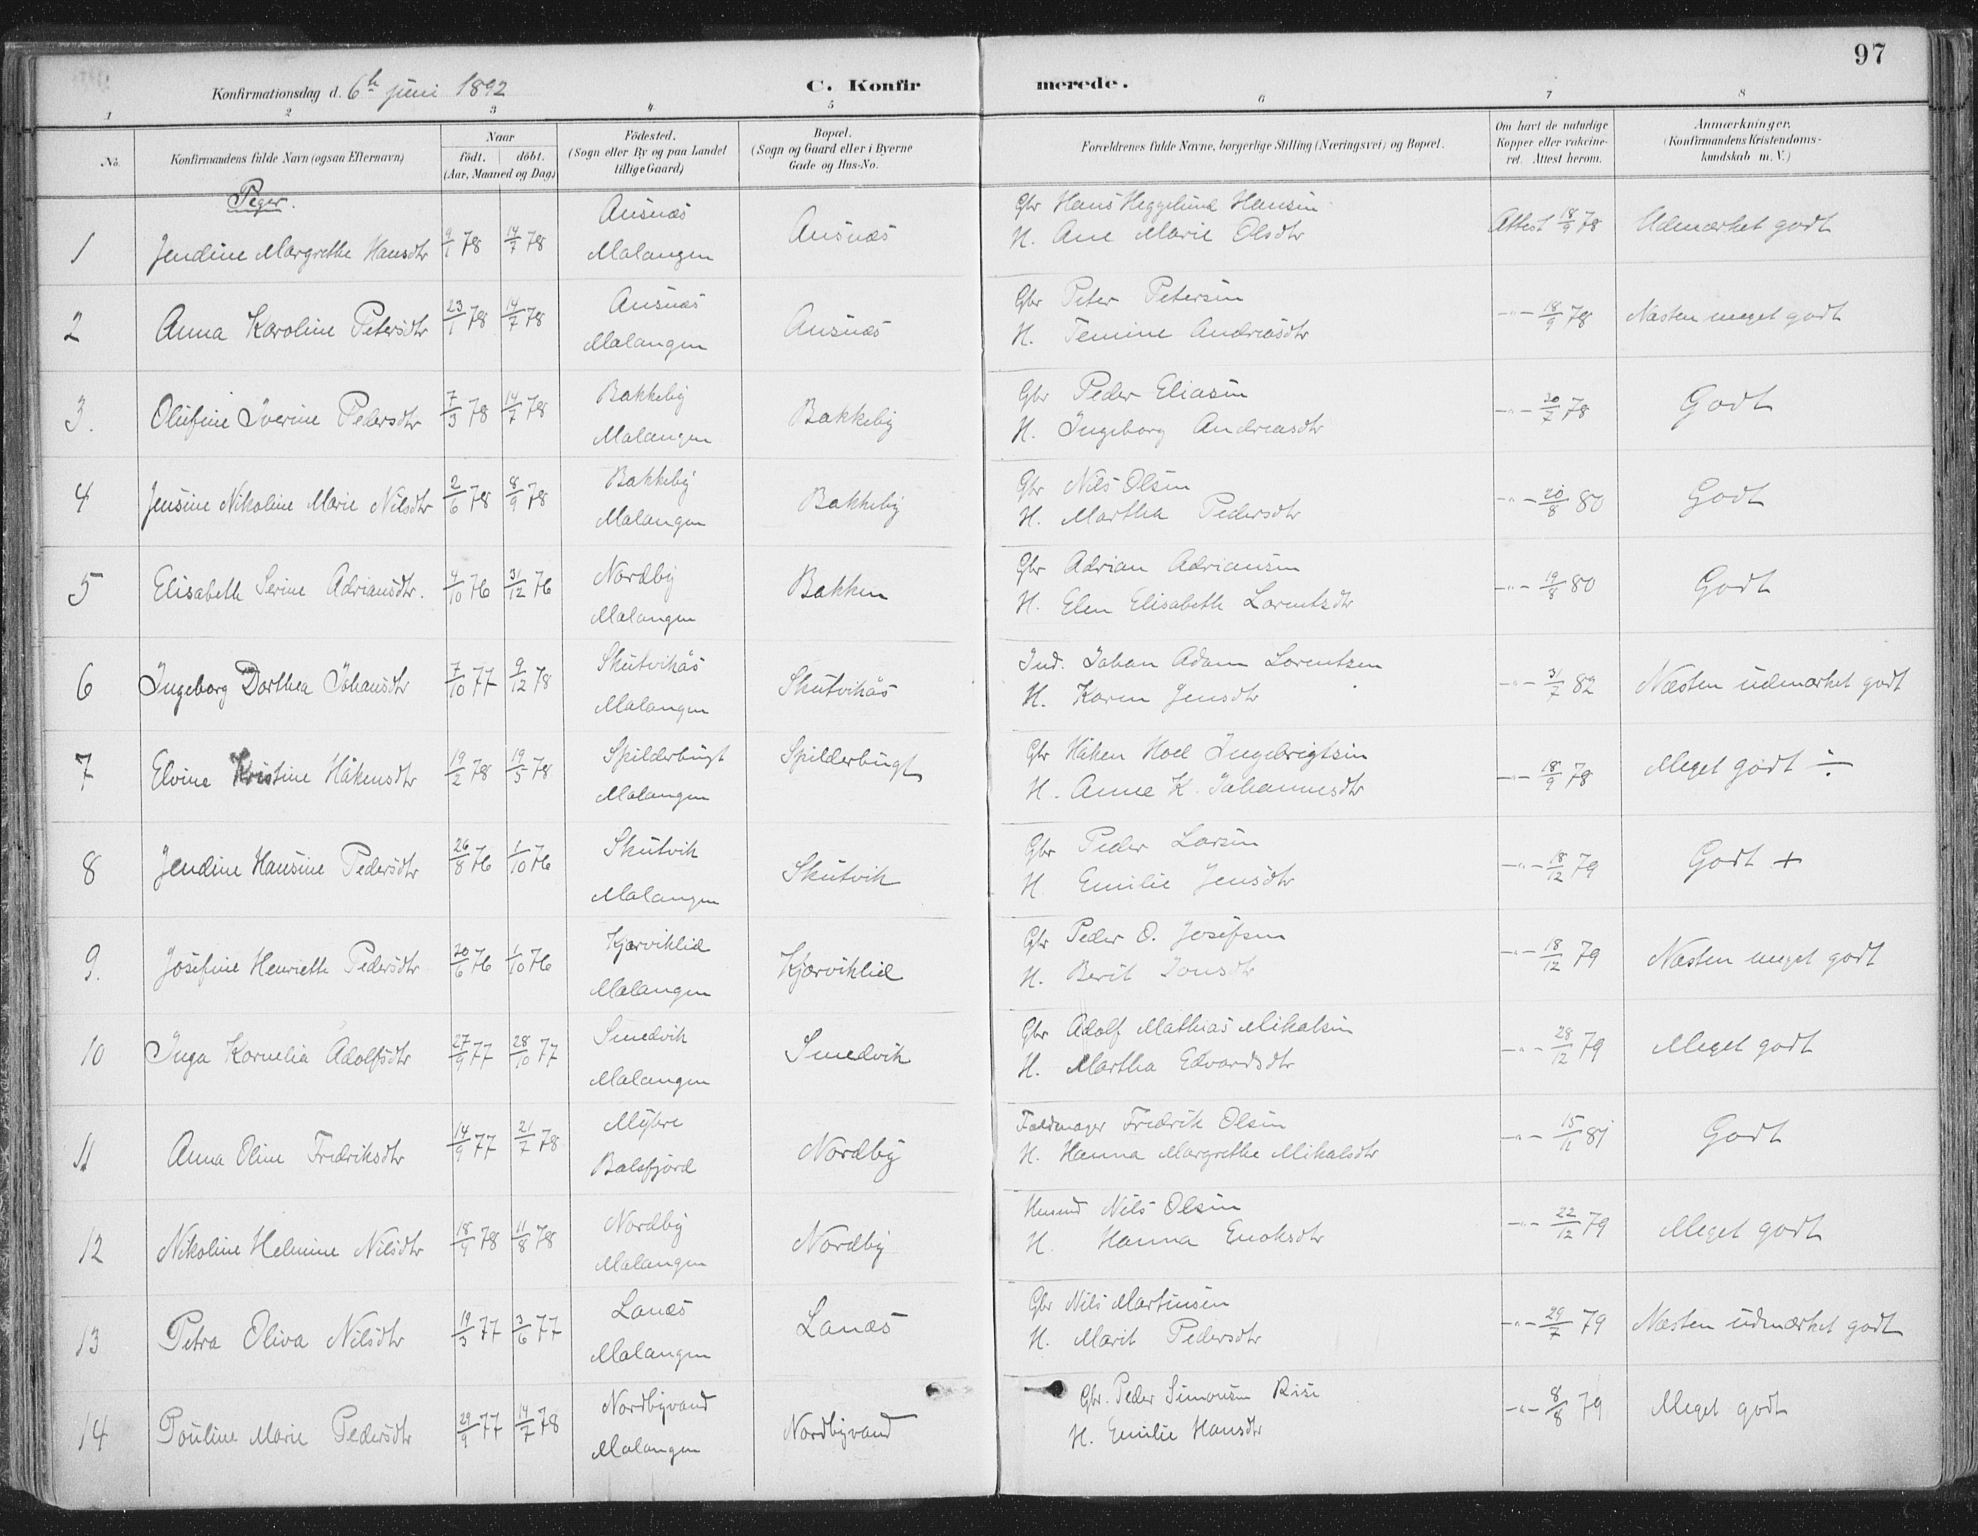 97
Konfirmationsdag d. 6h juni 1892 C. Konfirmerede.
1 2 3 4 5 6 7 8
No. Konfirmandens fulde Navn (ogsaa Efternavn) Naar födt. döbt. (Aar, Maaned og Dag) Födested. (Sogn eller By og paa Landet tillige Gaard) Bopæl. (Sogn og Gaard eller i Byerne Gade og Hus-No. Forældrenes fulde Navne, borgerlige Stilling (Næringsvei) og Bopæl. Om havt de naturlige Kopper eller vakcineret. Attest herom. Anmærkninger. (Konfirmandens Kristendomskundskab m. V.)
Piger.
1 Jendine Margrethe Hansdtr 9/1 78 14/7 78 Ansnæs Malangen Ansnæs Gbr Hans Heggelund Hansen H. Ane Marie Olsdtr Attest 18/9 78 Udmærket godt
2 Anna Karoline Petersdtr 23/1 78 14/7 78 Ansnæs Malangen Ansnæs Gbr Peter Petersen H. Temine Andreasdtr -"- 18/9 78 Næsten meget godt
3. Olufine Iverine Pedersdtr 7/3 78 14/7 78 Bakkeby Malangen Bakkeby Gbr Peder Eliasen H. Ingeborg Andreasdtr -"- 20/7 78 Godt
4 Jensine Nikoline Marie Nilsdtr 2/6 78 8/9 78 Bakkeby Malangen Bakkeby Gbr Nils Olsen H. Martha Pedersdtr -"- 20/8 80 Godt
5 Elisabeth Serine Adriansdtr. 4/10 76 31/12 76 Nordby Malangen Bakken Gbr Adrian Adriansen H. Elen Elisabeth Lorentsdtr -"- 19/8 80 Godt
6 Ingeborg Dorthea Johansdtr 7/10 77 9/12 78 Skutvikås Malangen Skutvikås Ind. Johan Adam Lorentsen H. Karen Jensdtr -"- 31/7 82 Næsten udmærket godt
7 Elvine Kristine Håkensdtr 19/2 78 19/5 78 Spilderbugt Malangen Spilderbugt Gbr Håken Hoel Ingebrigtsen H. Anne K. Johannesdtr -"- 18/9 78 Meget godt ÷
8 Jendine Hansine Pedersdtr 26/8 76 1/10 76 Skutvik Malangen Skutvik Gbr Peder Larsen H. Emilie Jensdtr -"- 18/12 79 Godt +
9. Josefine Henriette Pedersdtr 20/6 76 1/10 76 Kjærviklid Malangen Kjærviklid Gbr Peder O. Josefsen H. Berit Jonsdtr -"- 18/12 79 Næsten meget godt
10 Inga Kornelia Adolfsdtr 27/9 77 28/10 77 Smedvik Malangen Smedvik Gbr Adolf Mathias Mikalsen H. Martha Edvardsdtr -"- 28/12 79 Meget godt
11 Anna Oline Fredriksdtr 14/9 77 21/7 78 Myhre Balsfjord Nordby Fredrik Olsen H. Hanna Margrethe Mikalsdtr -"- 15/11 81 Godt
12 Nikoline Helmine Nilsdtr 18/4 78 11/8 78 Nordby Malangen Nordby Husmd Nils Olsen H. Hanna Enoksdtr -"- 22/12 79 Meget godt
13 Petra Oliva Nilsdtr 19/3 77 3/6 77 Lanæs Malangen Lanæs Gbr Nils Martinsen H. Marit Pedersdtr -"- 29/7 79 Næsten udmærket godt
14 Pouline Marie Pedersdtr 29/9 77 14/7 78 Nordbyvand Malangen Nordbyvand Gbr. Peder Simonsen Risi H. Emilie Hansdtr -"- 8/8 79 Meget godt